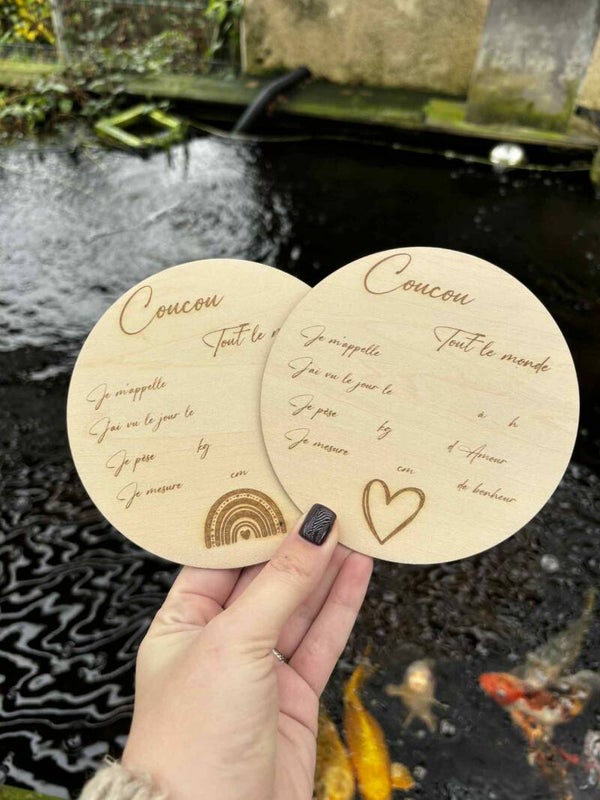 Coucou
Tout le m
Je m'appelle
J'ai vu le jour le
Je pèse kg
Je mesure cm
Coucou
Tout le monde
Je m'appelle
J'ai vu le jour le à h
Je pèse kg d'Amour
Je mesure cm de bonheur